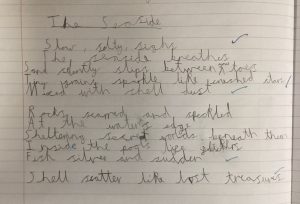 The Seaside
Slow, salty, sighs
The seaside breathes
Sand silently slips between toes
tiny prisms sparkle like crushed stars/
Mixed with shell dust
Rocks scarred and speckled
At the water's edge
Sheltering secret worlds beneath them
Inside the pools
Fish silver and sudden
Shell scatter like lost treasures